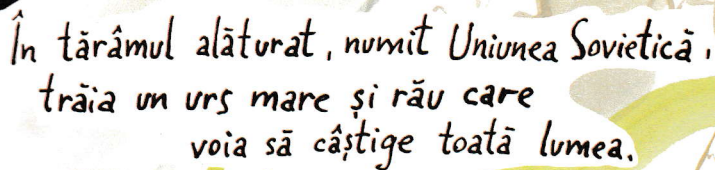 În tărâmul alăturat, numit Uniunea Sovietică,
trăia un urs mare și rău care
voia să câștige toată lumea.